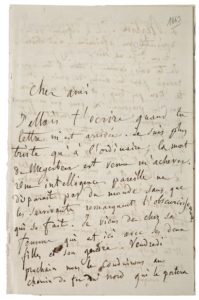 1863
Cher ami
J'allais t'écrire quand ta
lettre m'est arrivée. Je suis plus
triste qu'à l'ordinaire, la mort
de m'a achevé.
une intelligence pareille ne
disparaît pas du monde sans que
les survivants remarquent l'obscurcissement
qui se fait. Je viens de chez sa
femme qui est ici avec les deux
filles et son gendre. Vendredi
prochain nous le conduirons au
chemin de fer du nord qui le portera